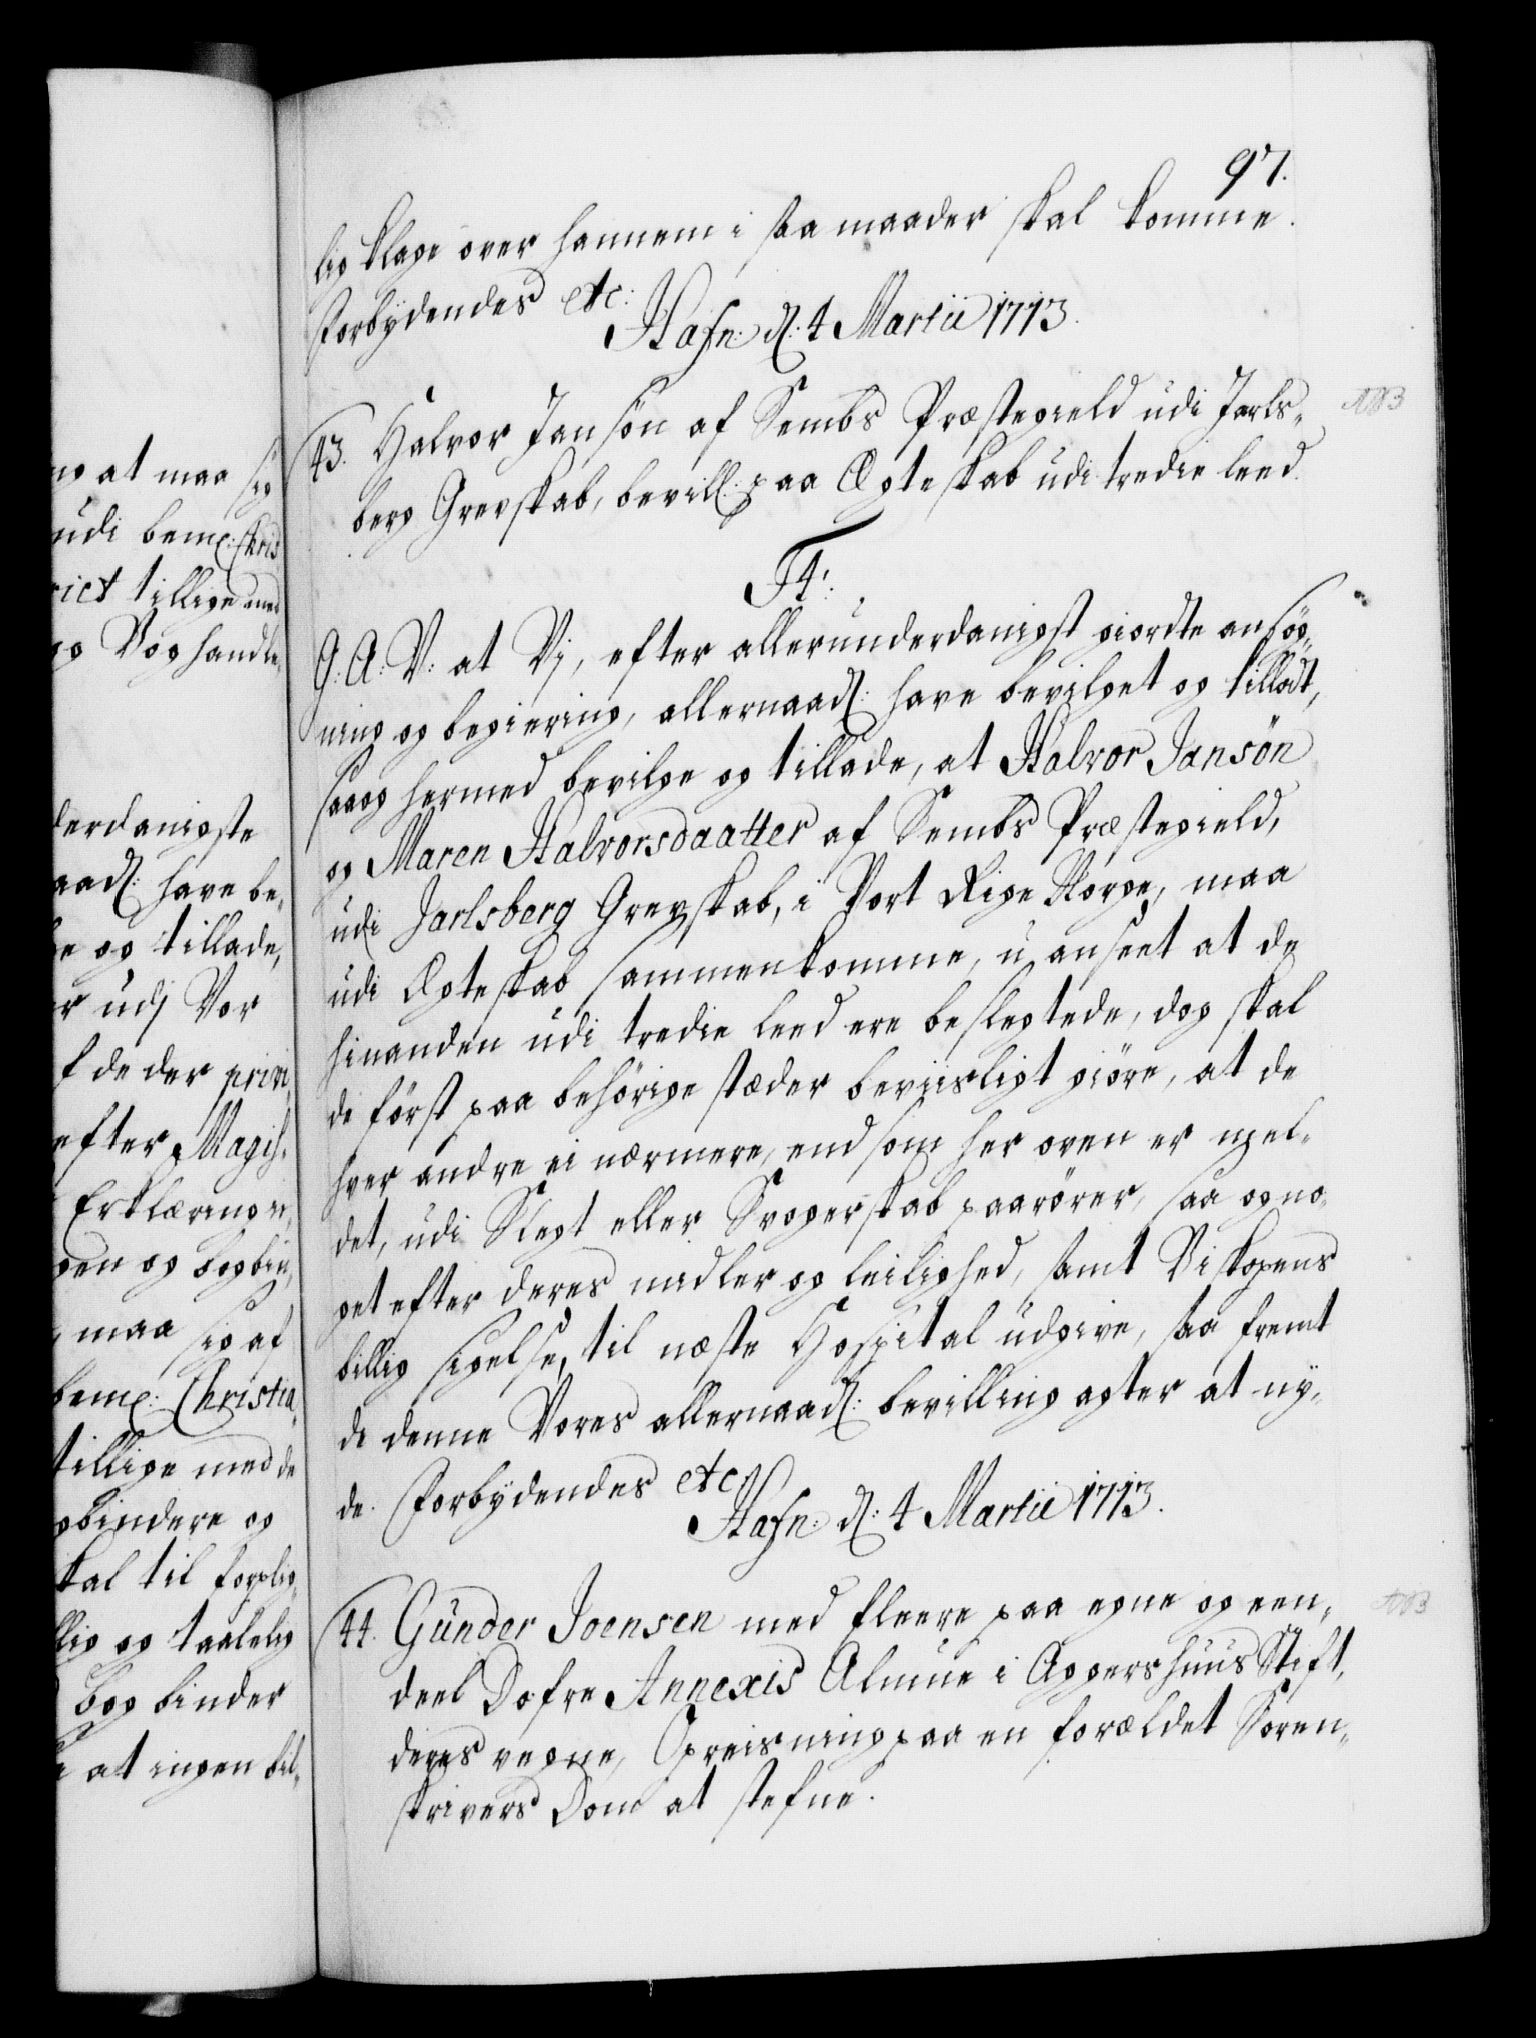 97.
lig klage over hannem i saa maader skal komme.
Forbydendes etc:
Hafn: d: 4 Martii 1713.
43. Halvor Jansøn af Sembs Præstegield udi Jarls-
berg Grevskab, bevill: paa Ægteskab udi tredie leed.
F4:
G: A: V: at Vj, efter allerunderdanigst giordte ansøg-
ning og begiering, allernaad: have bevilget og tilladt,
saa og hermed bevilge og tillade, at Halvor Jansøn
og Maren Halvorsdaatter af Sembs Præstegield,
udi Jarlsberg Grevskab, i Vort Rige Norge, maa
udi Ægteskab sammenkomme, uanseet at de
hinanden udi tredie leed ere beslegtede, dog skal
de først paa behørige stæder beviisligt giøre, at de
hver andre ei nærmere, end som her oven er mel-
det, udi Slegt eller Svogerskab paarører, saa og no-
get efter deres midler og leilighed, samt Biskopens
billig sigelse, til næste Hospital udgive, saa fremt
de denne Vores allernaad: bevilling agter at ny-
de. Forbydendes etc
Hafn: d: 4 Martii 1713.
44. Gunder Joensen med fleere paa egne og een-
deel Dofre Annexis Almue i Aggershuus Stift,
deres vegne, Opreisning paa en forældet Soren-
skrivers Dom at stefne.
ng at maa sig
udi bem: Chris
rict tillige med
og Vog handle-
derdanigste
aad: have be-
ge og tillade,
r udj Vor
f de der privi-
efter Magis-
Erklæring
gen og bogbin-
maa sig af
bem: Christia-
tillige med de
gbindere og
skal til forplig-
llig og taalelig
bog binder
at ingen bil-